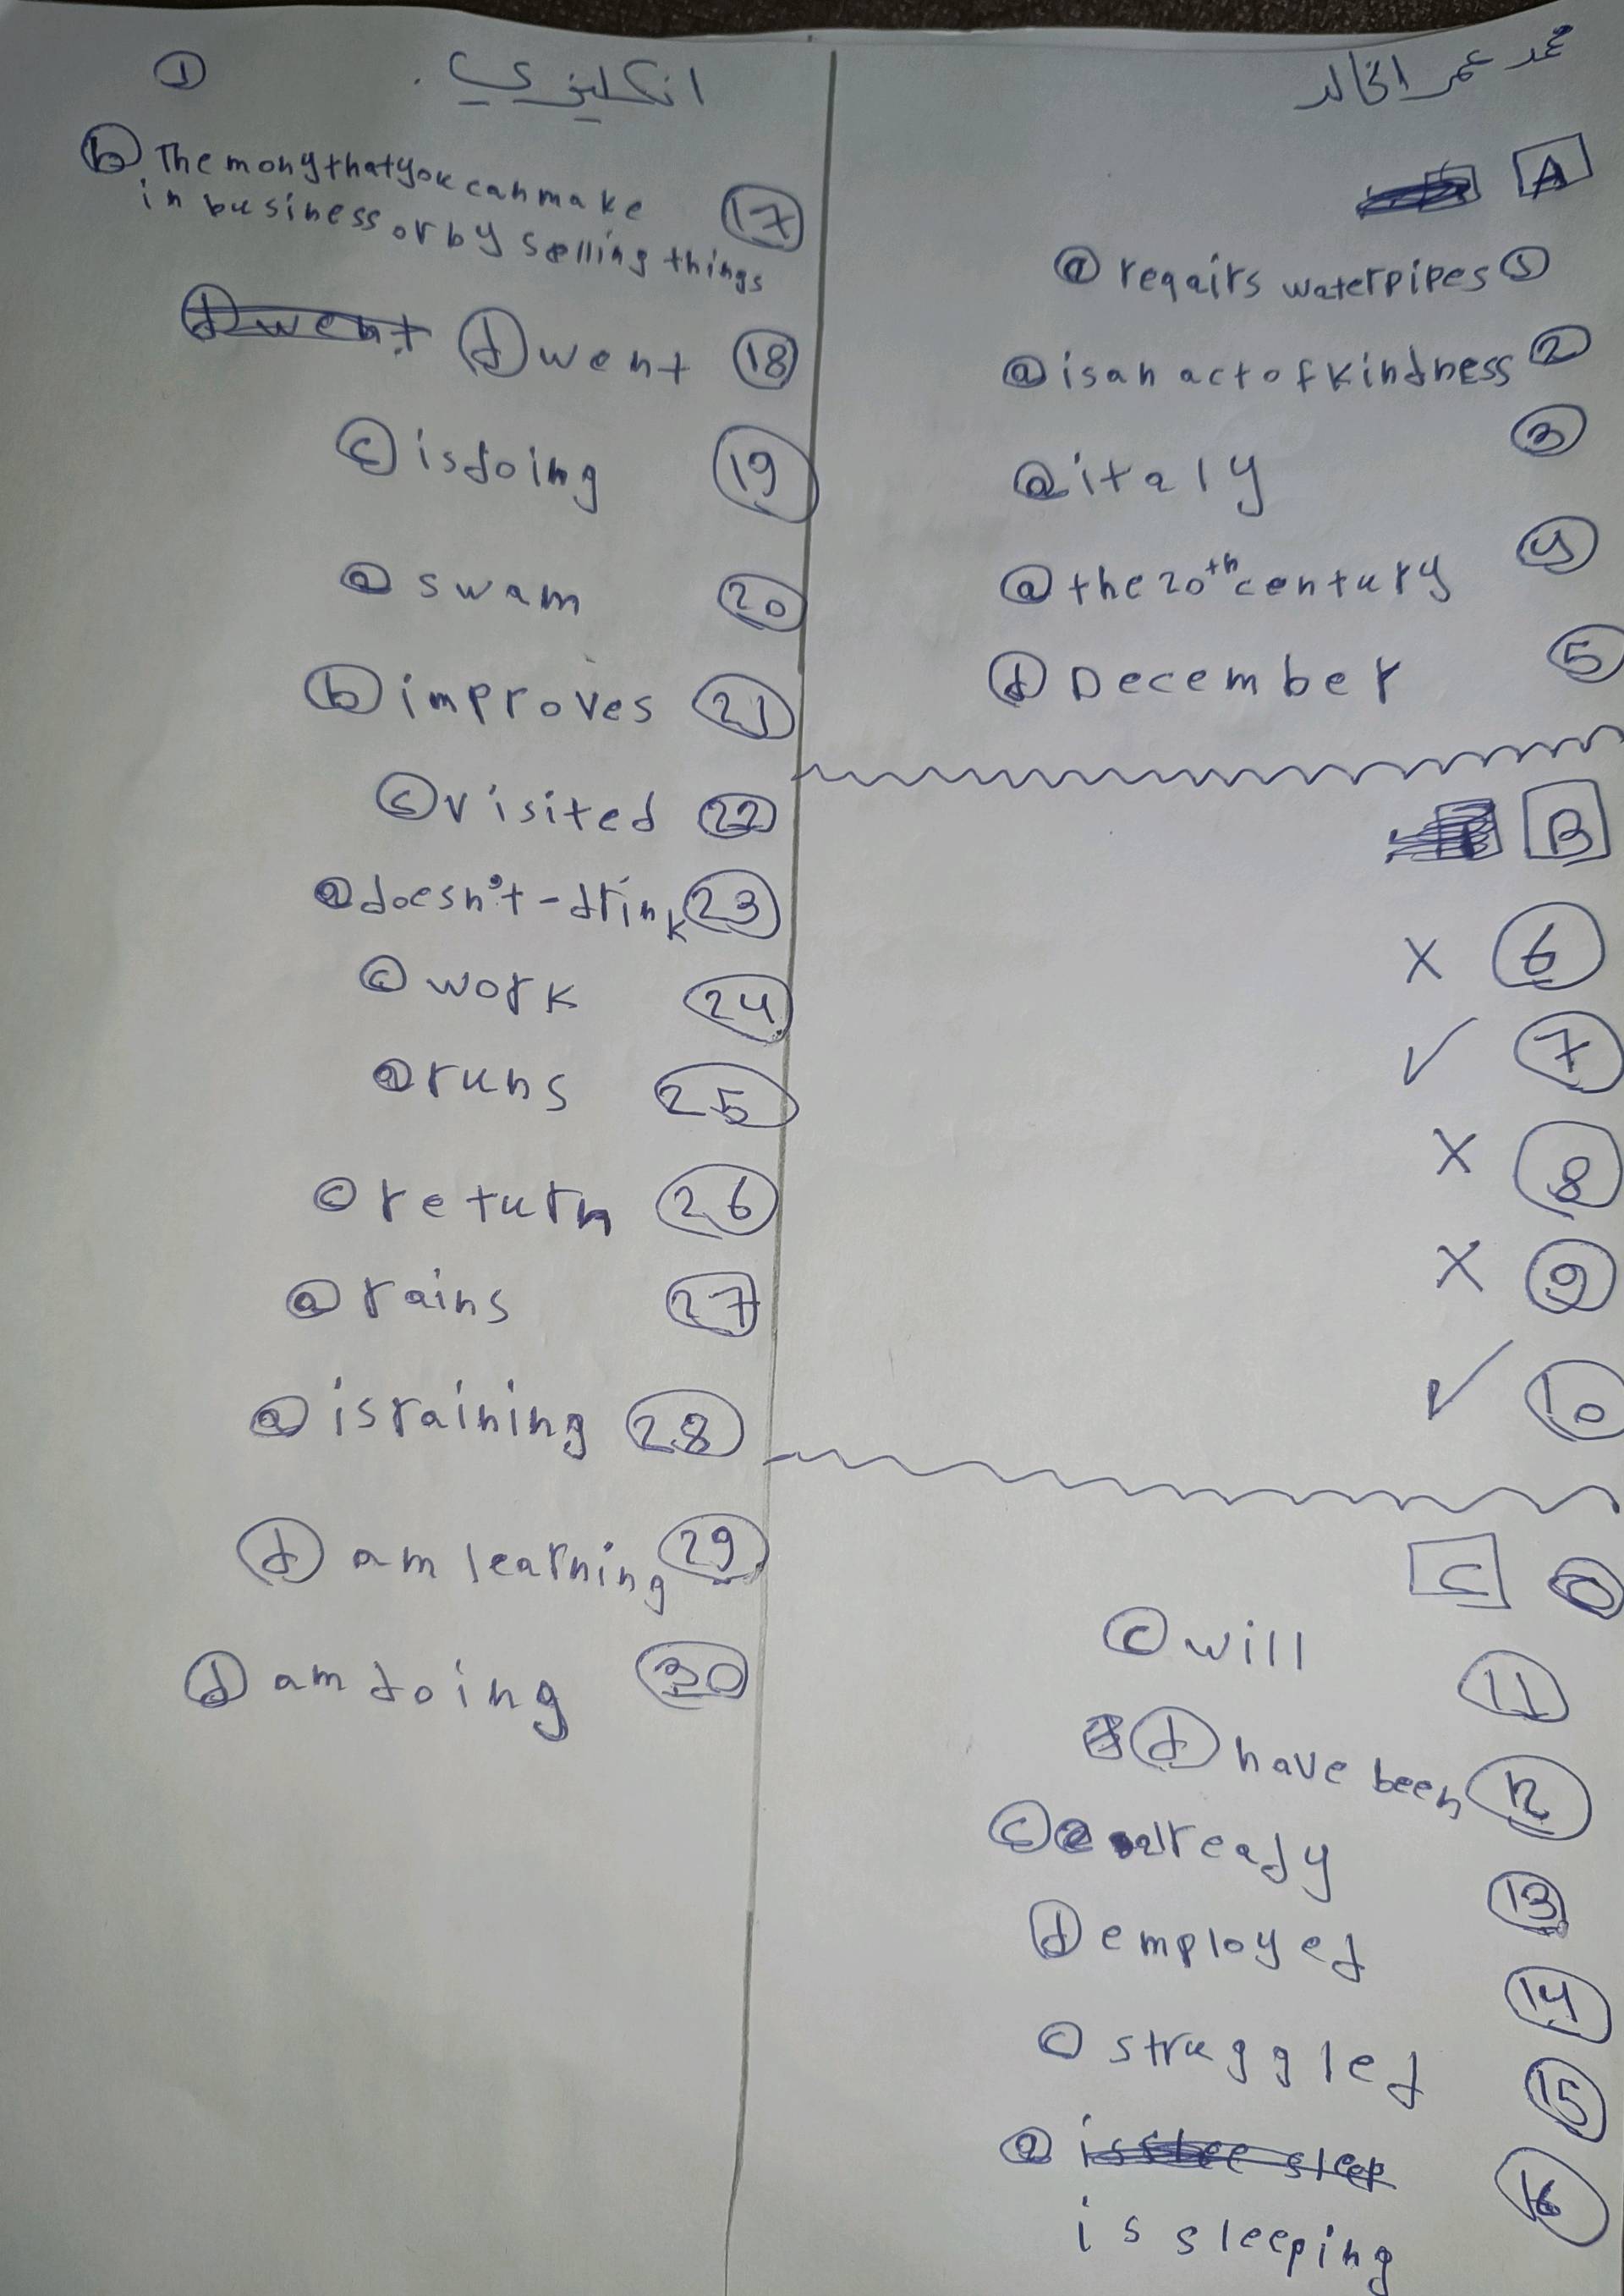 محمد عمر الخالد
A
ⓐ reqairs waterpipes ①
ⓐ is an act of kindness ②
ⓐ italy ③
ⓐ the 20th century ④
ⓓ December ⑤
B
X ⑥
✓ ⑦
X ⑧
X ⑨
✓ ⑩
C
ⓒ will ⑪
ⓓ have been ⑫
ⓒ already ⑬
ⓓ employed ⑭
ⓒ struggled ⑮
ⓐ ⑯
is sleeping
انكليزي ①
ⓑ The mony that you can make ⑰
in business or by selling things
ⓓ went ⑱
ⓒ is doing ⑲
ⓐ swam ⑳
ⓑ improves ㉑
ⓒ visited ㉒
ⓐ doesn't - drink ㉓
ⓒ work ㉔
ⓐ runs ㉕
ⓒ return ㉖
ⓐ rains ㉗
ⓐ is raining ㉘
ⓓ am learning ㉙
ⓓ am doing ㉚